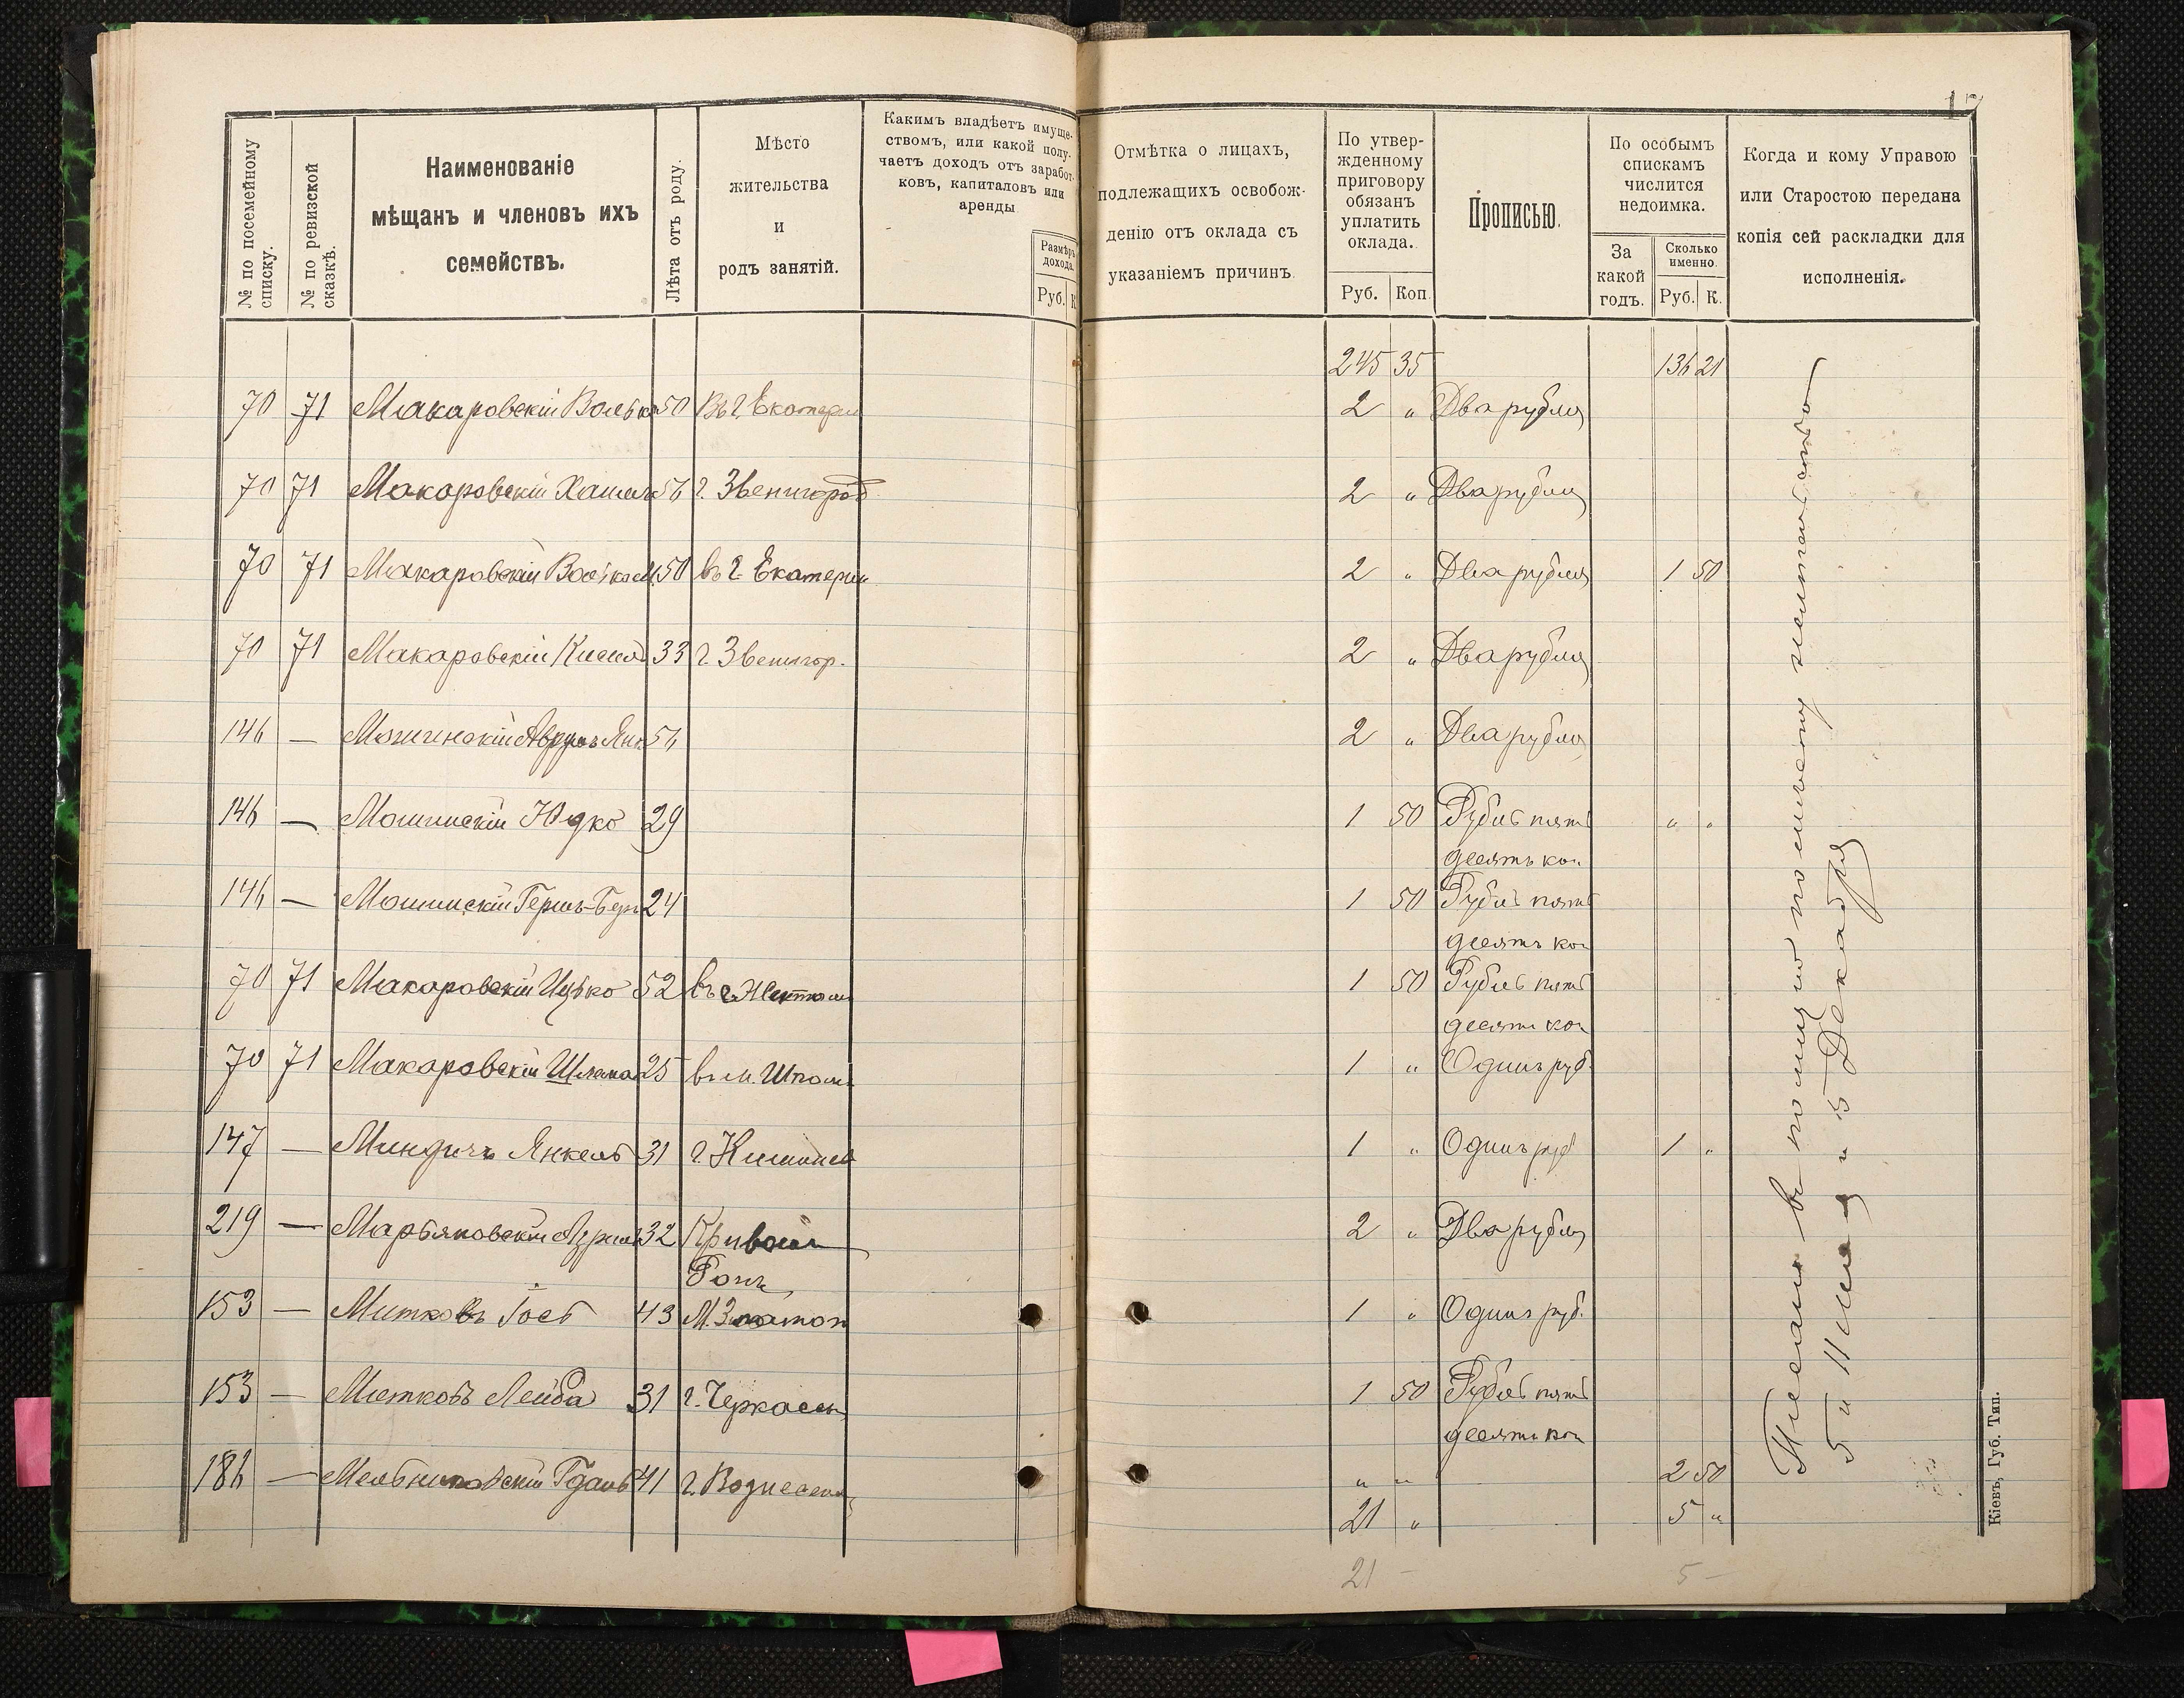 17
№ по посемейному списку.
№ по ревизской сказкѣ.
Наименованіе
мѣщанъ и членовъ ихъ
семействъ.
Лѣта отъ роду.
Мѣсто
жительства
и
родъ занятій.
Какимъ владѣетъ имуще-
ствомъ, или какой полу-
чаетъ доходъ отъ заработ-
ковъ, капиталовъ или
аренды
Размѣръ
дохода.
Руб. К
Отмѣтка о лицахъ,
подлежащихъ освобож-
денію отъ оклада съ
указаніемъ причинъ.
По утвер-
жденному
приговору
обязанъ
уплатить
оклада.
Руб. Коп.
Прописью.
По особымъ
спискамъ
числится
недоимка.
За
какой
годъ.
Сколько
именно.
Руб. К.
Когда и кому Управою
или Старостою передана
копія сей раскладки для
исполненія.
245 35 136 21
70 71 Макаровскій Волько 50 Въ г. Екатерин 2 " Два рубля
70 71 Макаровскій 56 г. Звенигород 2 " Два рубля
70 71 Макаровскій 50 въ г. Екатерин 2 " Два рубля 1 50
70 71 Макаровскій 33 г. Звенигор. 2 " Два рубля
146 — Мошинскій 56 2 " Два рубля
146 — Мошинскій Юдко 29 1 50 Рубль пять " "
десятъ коп
146 — Мошинскій Гершъ-Бер 24 1 50 Рубль пять
десятъ коп
70 71 Макаровскій Ицько 52 1 50 Рубль пять
десятъ коп
70 71 Макаровскій Шлема 25 въ м. Шпола 1 " Одинъ руб.
147 — Миндичъ Янкель 31 г. Кишинев 1 " Одинъ руб 1 "
219 — Марьяновскій 32 Кривой 2 " Два рубля
Рогъ
153 — Митковъ Іось 43 М. Златоп 1 " Одинъ руб.
153 — Митковъ Лейба 31 г. Черкассы 1 50 Рубль пять
десятъ коп
186 — Мельниковскій Гдаль 41 г. Вознесен " " 2 50
21 " 5 "
21 - 5 -
"5" Декабря
Кіевъ, Губ. Тип.